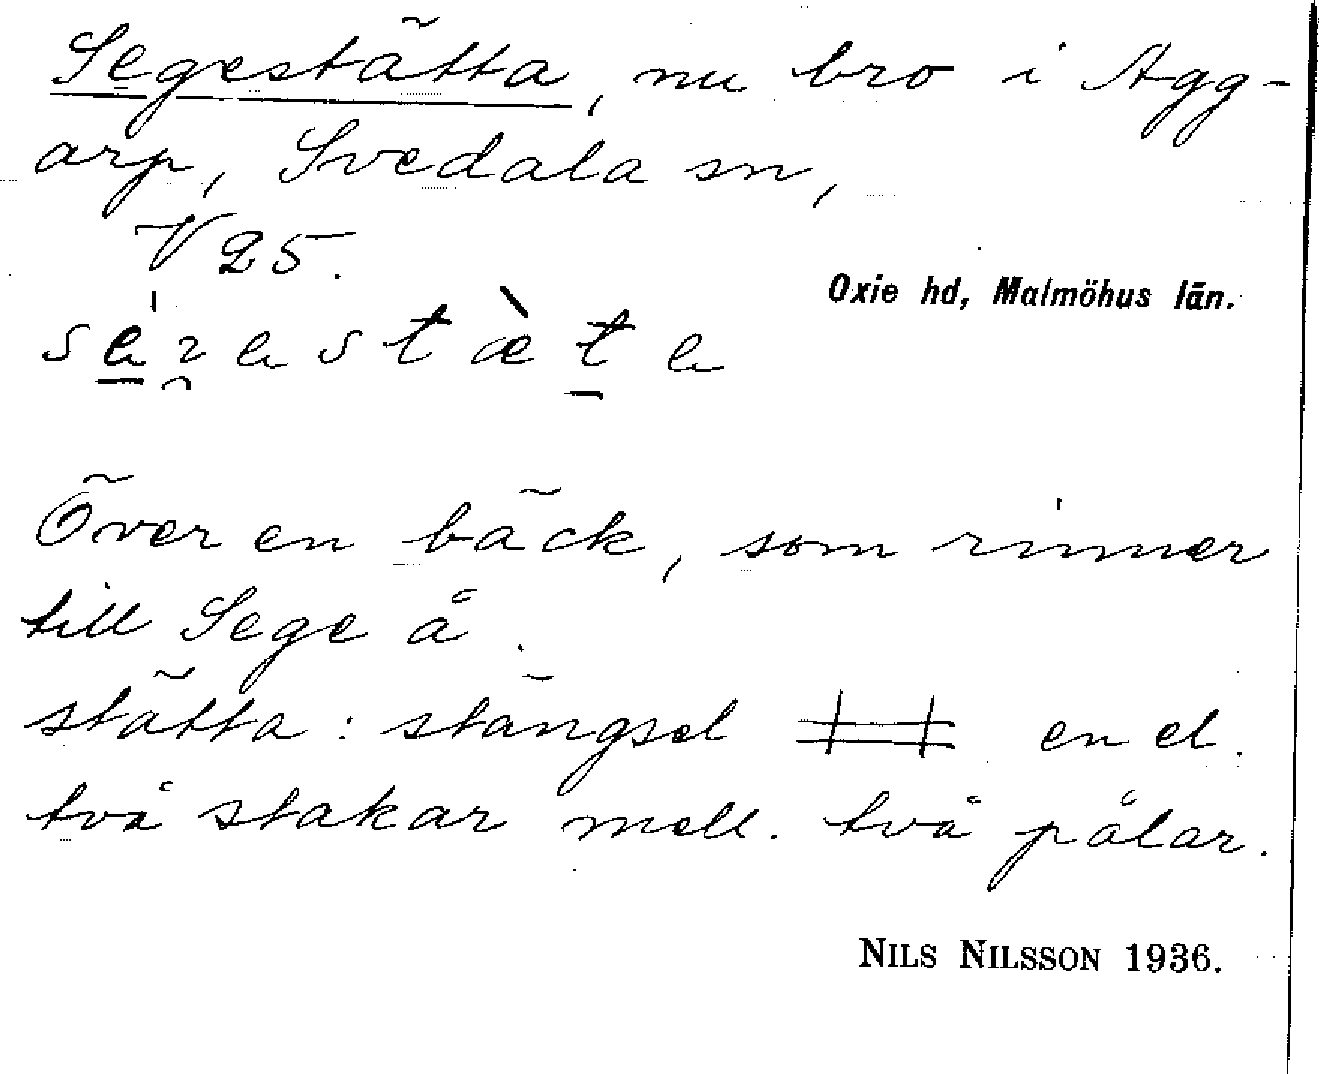 Segestätta, nu bro i Agg-
arp, Svedala sn,
V 25.
Oxie hd, Malmöhus län.
Över en bäck, som rinner
till Sege å.
stätta: stängsel en el.
två stakar mell. två pålar.
NILS NILSSON 1936.